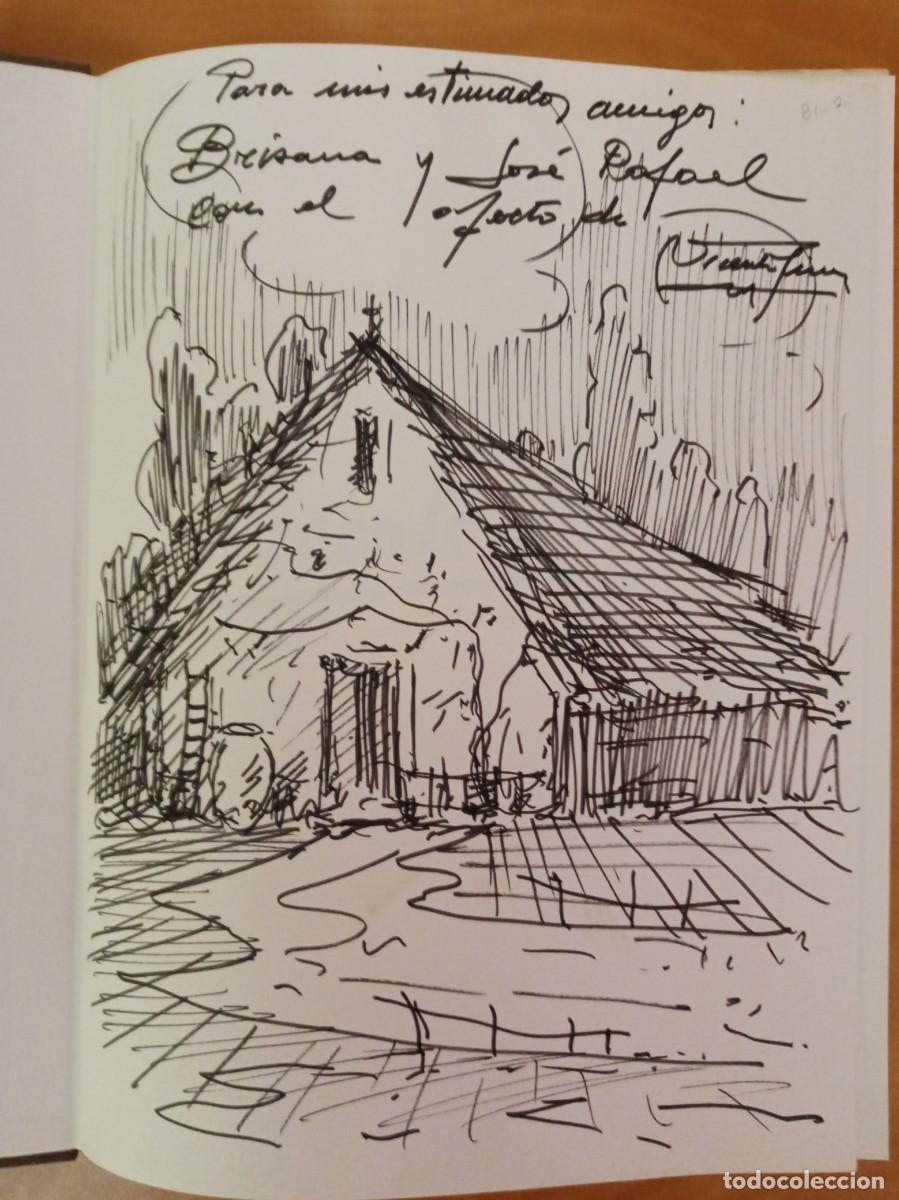 Para mis estimados amigos:
y José Rafael
con el afecto de
Vicente
todocoleccion